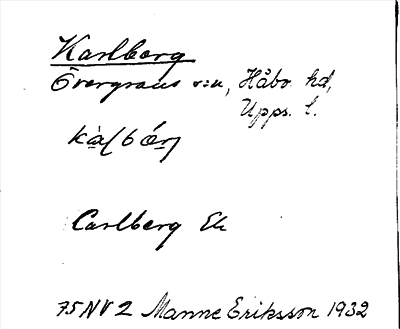 Karlberg
Övergrans s:n, Håbo hd,
Upps. l.
Carlberg Ek
75NV2 Manne Eriksson 1932